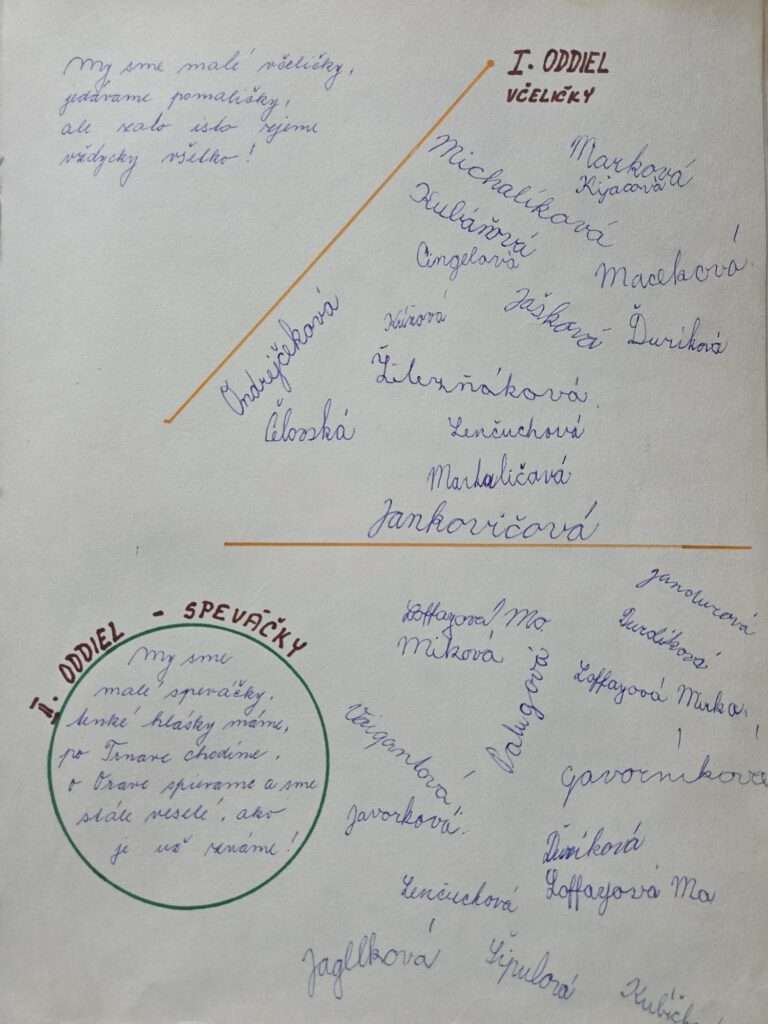 My sme malé včeličky,
jedávame pomaličky,
ale zato isto zjeme
vždycky všetko!
I. ODDIEL
VČELIČKY
Marková
Kijacová
Michalíková
Kubáňová
Cingelová
Maceková
Jašková
Ďuríková
Kúzová
Ondrejčeková
Železňáková
ČLovská
Lenčuchová
Marhaličavá
Jankovičová
II. ODDIEL - SPEVÁČKY
My sme
malé speváčky,
tenké hlásky máme,
po Trnave chodíme,
o Orave spievame a sme
stále veselé, ako
je už známe!
Jandurová
Loffayová Mo.
Ďurdíková
Miková
Loffayová Mirka.
Palugová
Vaigantová
Gavorníková
Javorková
Ďuríková
Lenčuchová
Loffayová Mo
Jagelková
Šipulová